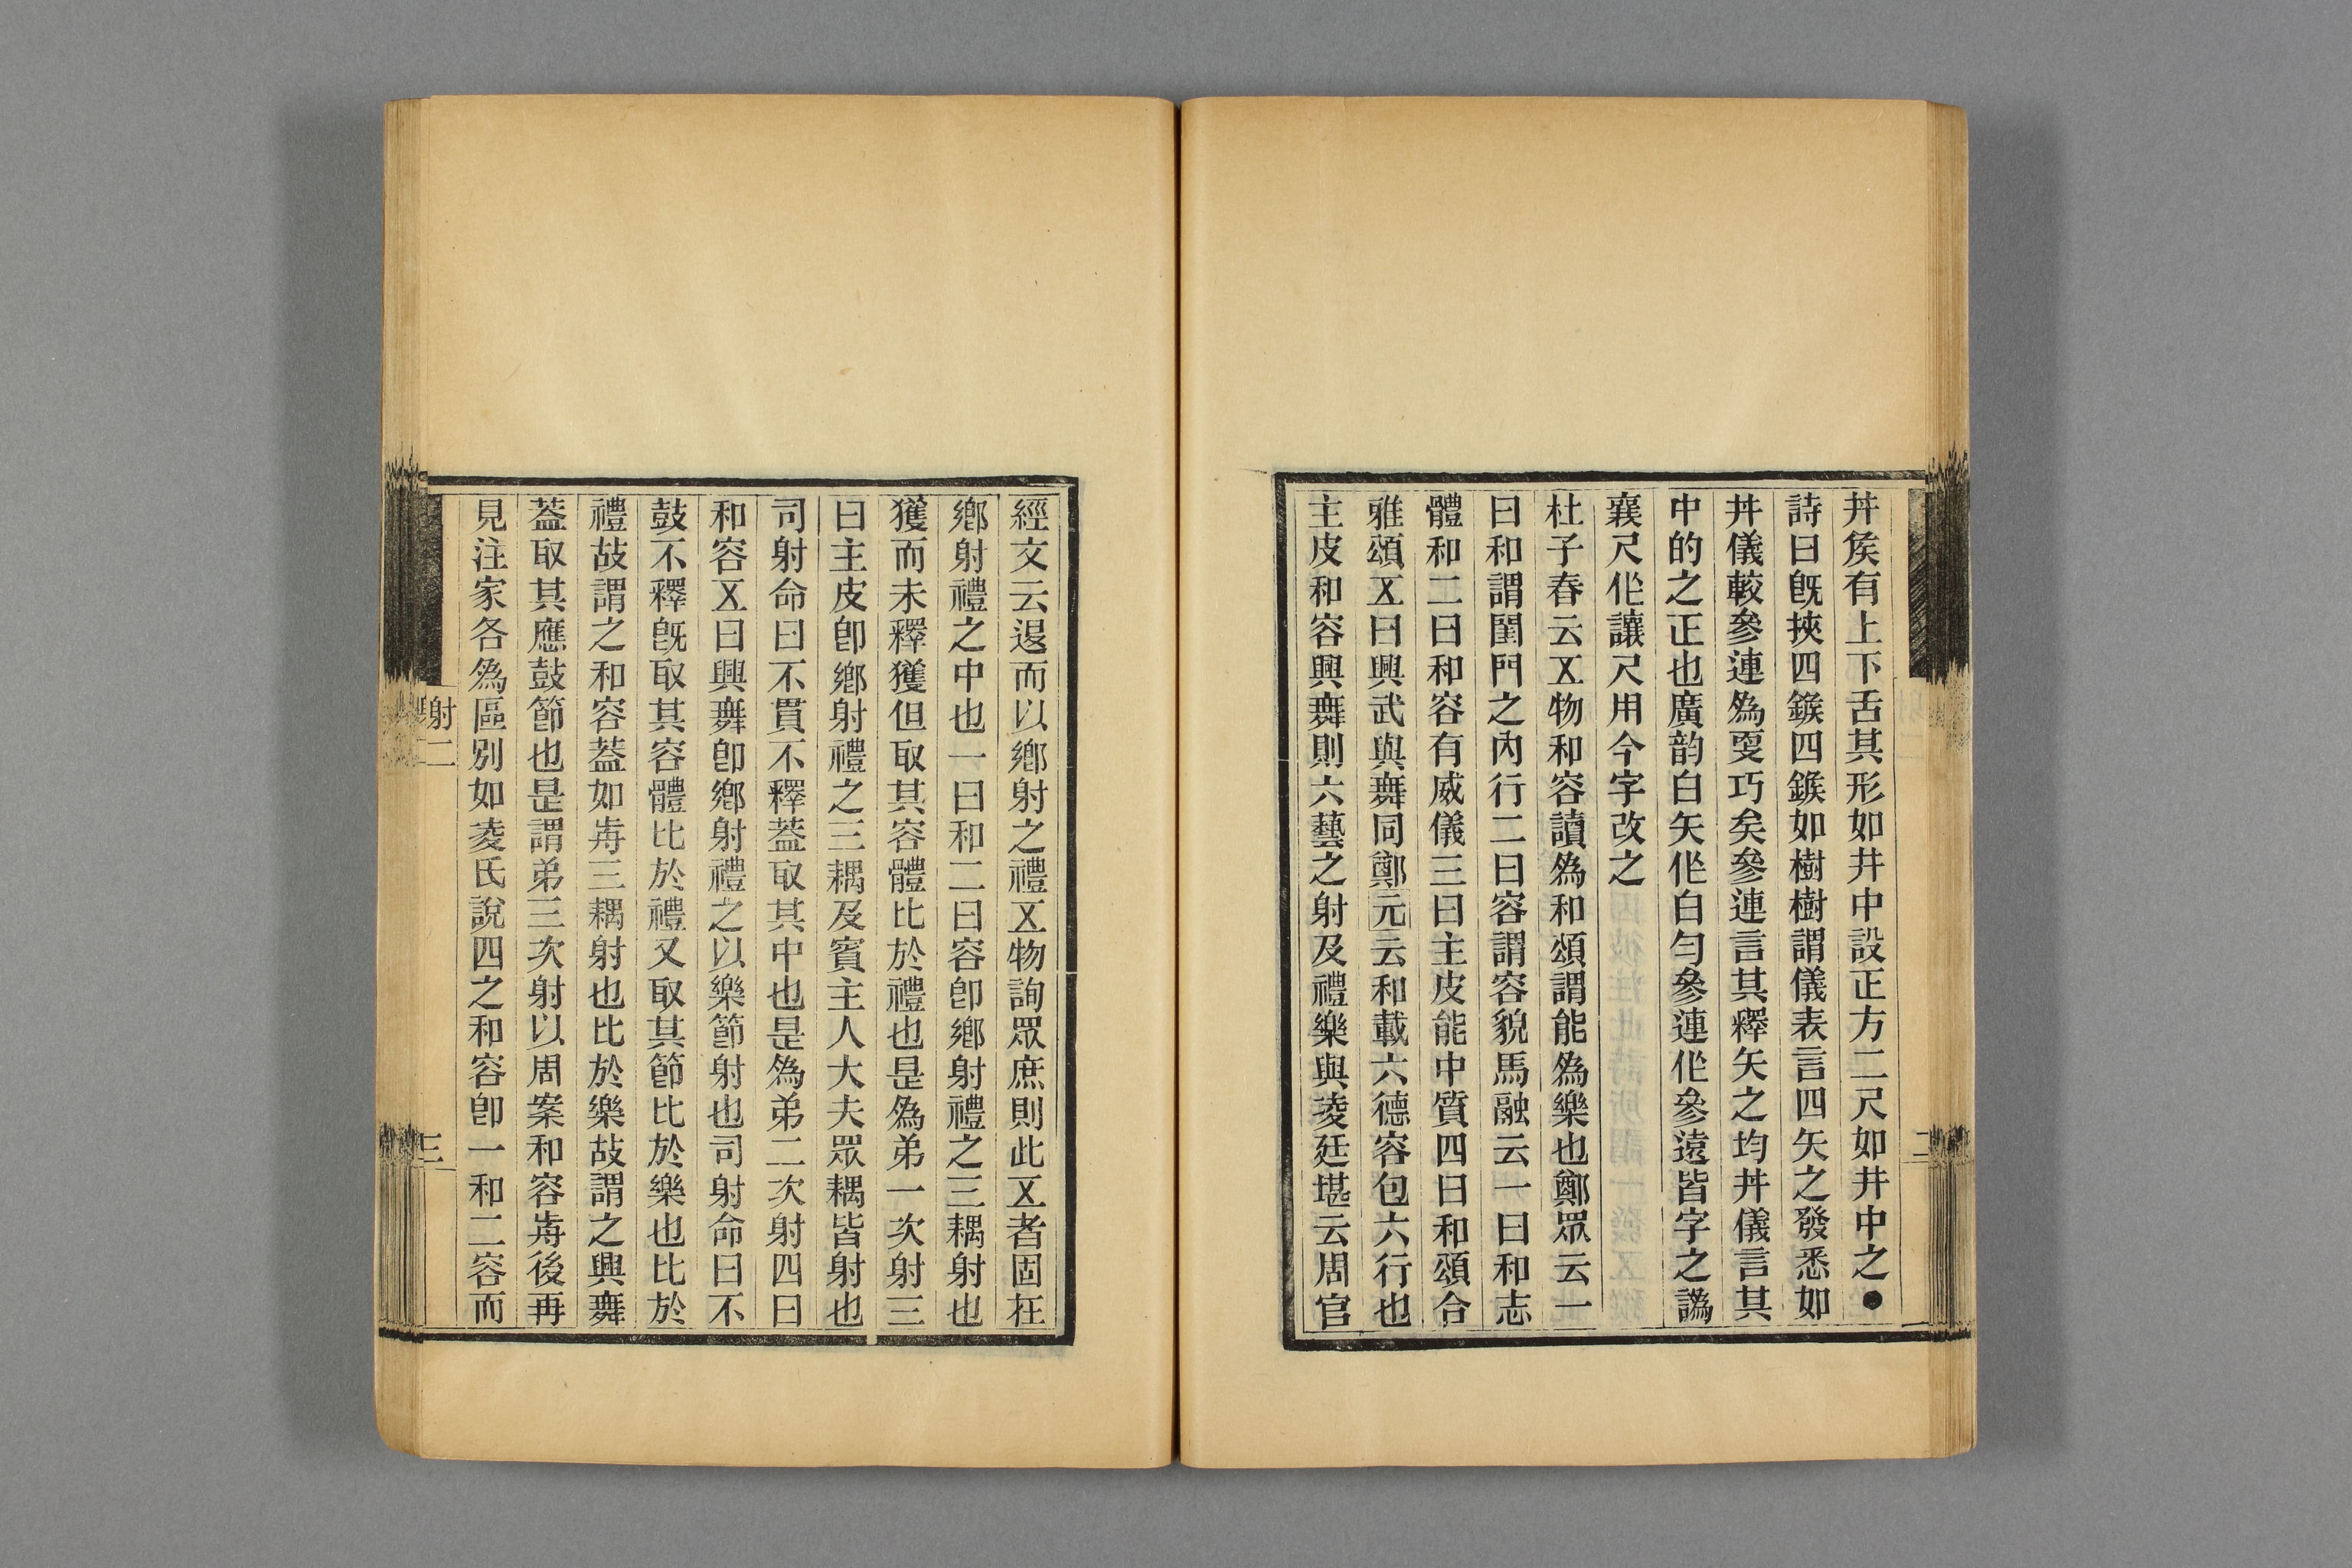 丼矦有上下舌其形如井中設正方二尺如井中之●
詩曰旣挾四鍭四鍭如樹樹謂儀表言四矢之發悉如
丼儀較參連爲㪅巧矣參連言其釋矢之均丼儀言其
中的之正也廣韵白矢作白勻參連作參遠皆字之譌
襄尺作讓尺用今字改之
杜子春云㐅物和容讀爲和頌謂能爲樂也鄭眾云一
曰和謂閨門之內行二曰容謂容貌馬融云一曰和志
體和二曰和容有威儀三曰主皮能中質四曰和頌合
雅頌㐅曰興武與舞同鄭元云和載六德容包六行也
主皮和容興舞則六藝之射及禮樂與淩廷堪云周官
二
經文云退而以鄉射之禮㐅物詢眾庶則此㐅者固在
鄉射禮之中也一曰和二曰容卽鄉射禮之三耦射也
獲而未釋獲但取其容體比於禮也是爲弟一次射三
曰主皮卽鄉射禮之三耦及賓主人大夫眾耦皆射也
司射命曰不貫不釋葢取其中也是爲弟二次射四曰
和容㐅曰興舞卽鄉射禮之以樂節射也司射命曰不
鼓不釋旣取其容體比於禮又取其節比於樂也比於
禮故謂之和容葢如歬三耦射也比於樂故謂之興舞
葢取其應鼓節也是謂弟三次射以周案和容歬後再
見注家各爲區別如淩氏說四之和容卽一和二容而
射二
三